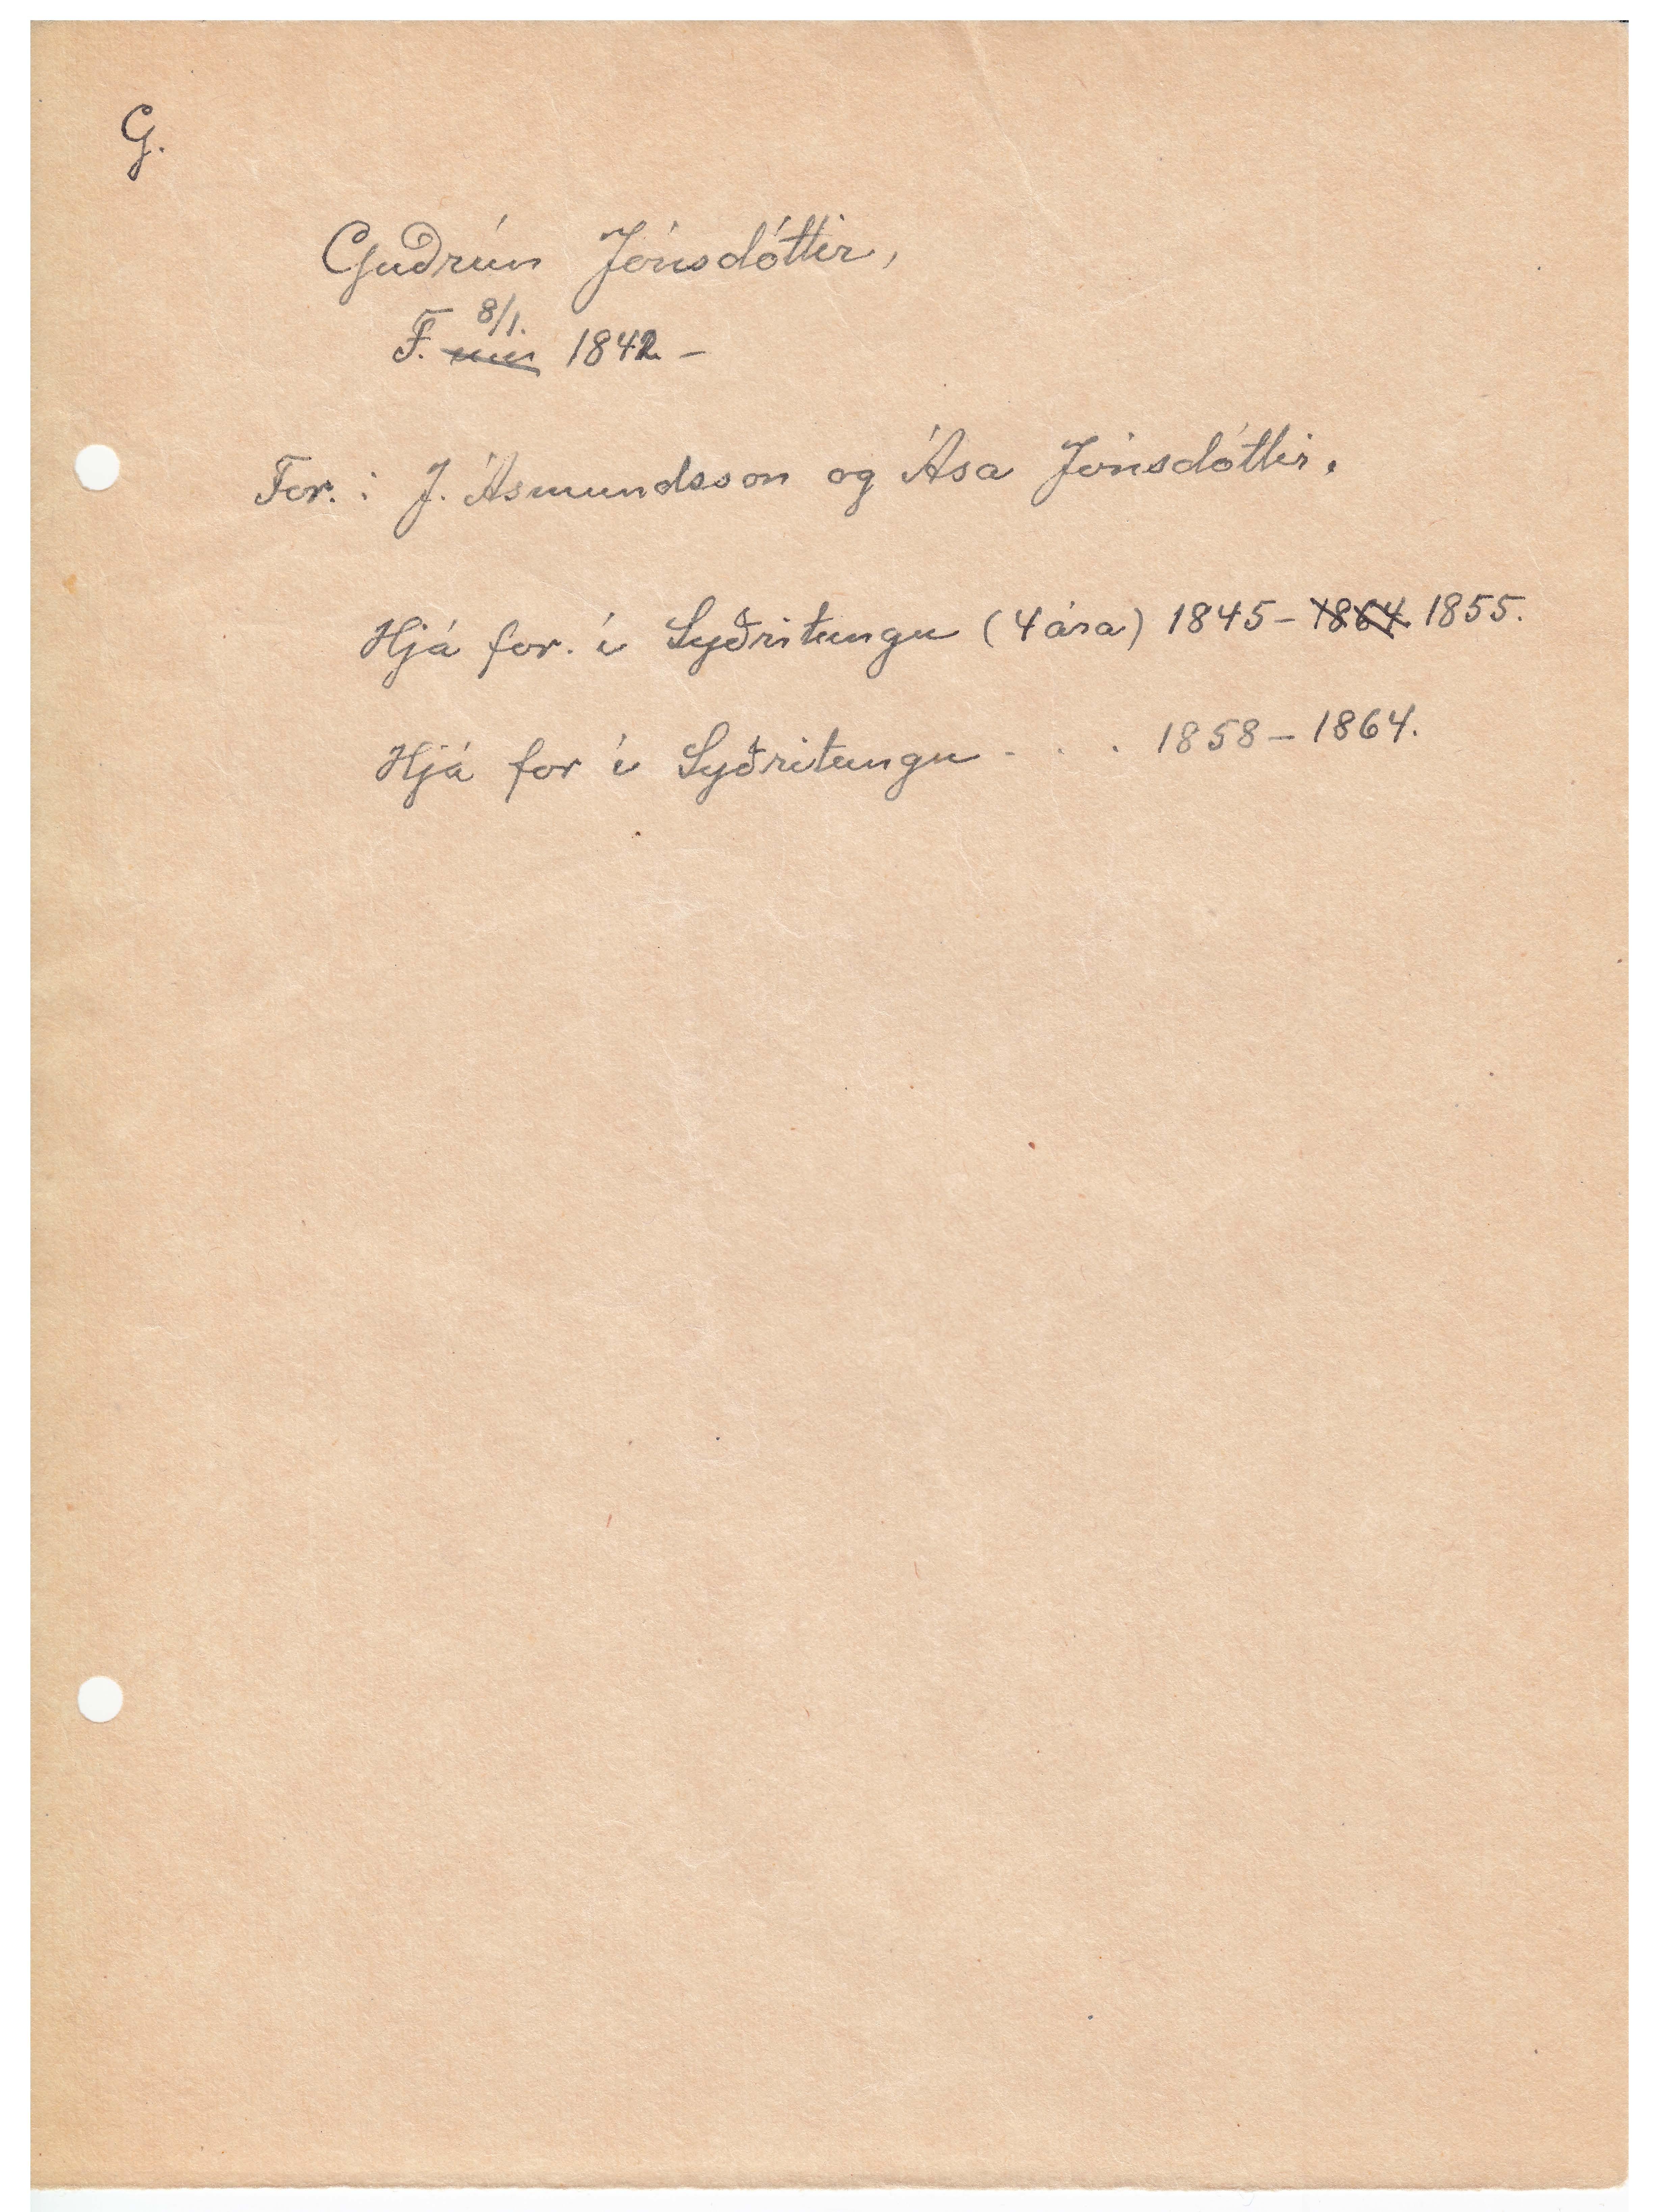 G.
Guðrún Jónsdóttir,
8/1.
F. um 1842 –
For. : J. Ásmundsson og Ása Jónsdóttir.
Hjá for. í Syðritungu (4 ára) 1845 – 1864 1855.
Hjá for í Syðritungu - . . 1858 – 1864.